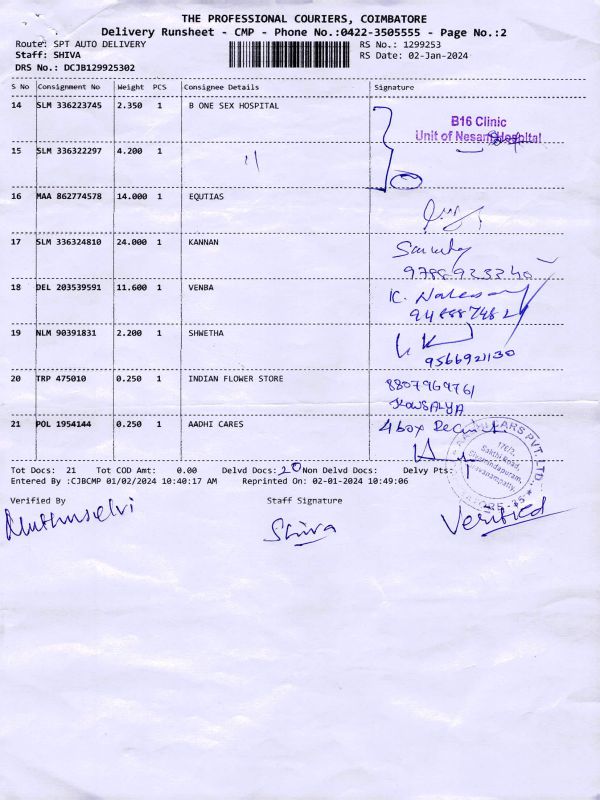 THE PROFESSIONAL COURIERS, COIMBATORE
Delivery Runsheet - CMP - Phone No.:0422-3505555 - Page No.:2
Route: SPT AUTO DELIVERY RS No.: 1299253
Staff: SHIVA RS Date: 02-Jan-2024
DRS No.: DCJB129925302
S No Consignment No Weight PCS Consignee Details Signature
14 SLM 336223745 2.350 1 B ONE SEX HOSPITAL
B16 Clinic
Unit of Nesam Hospital
15 SLM 336322297 4.200 1 11
16 MAA 862774578 14.000 1 EQUTIAS
17 SLM 336324810 24.000 1 KANNAN
18 DEL 203539591 11.600 1 VENBA
19 NLM 90391831 2.200 1 SHWETHA
9566921130
20 TRP 475010 0.250 1 INDIAN FLOWER STORE 8807969761
KOWSALYA
21 POL 1954144 0.250 1 AADHI CARES 4 box
Tot Docs: 21 Tot COD Amt: 0.00 Delvd Docs: 20 Non Delvd Docs: 1 Delvy Pts:
Entered By :CJBCMP 01/02/2024 10:40:17 AM Reprinted On: 02-01-2024 10:49:06
Verified By Staff Signature
Muthuselvi Shiva Verified